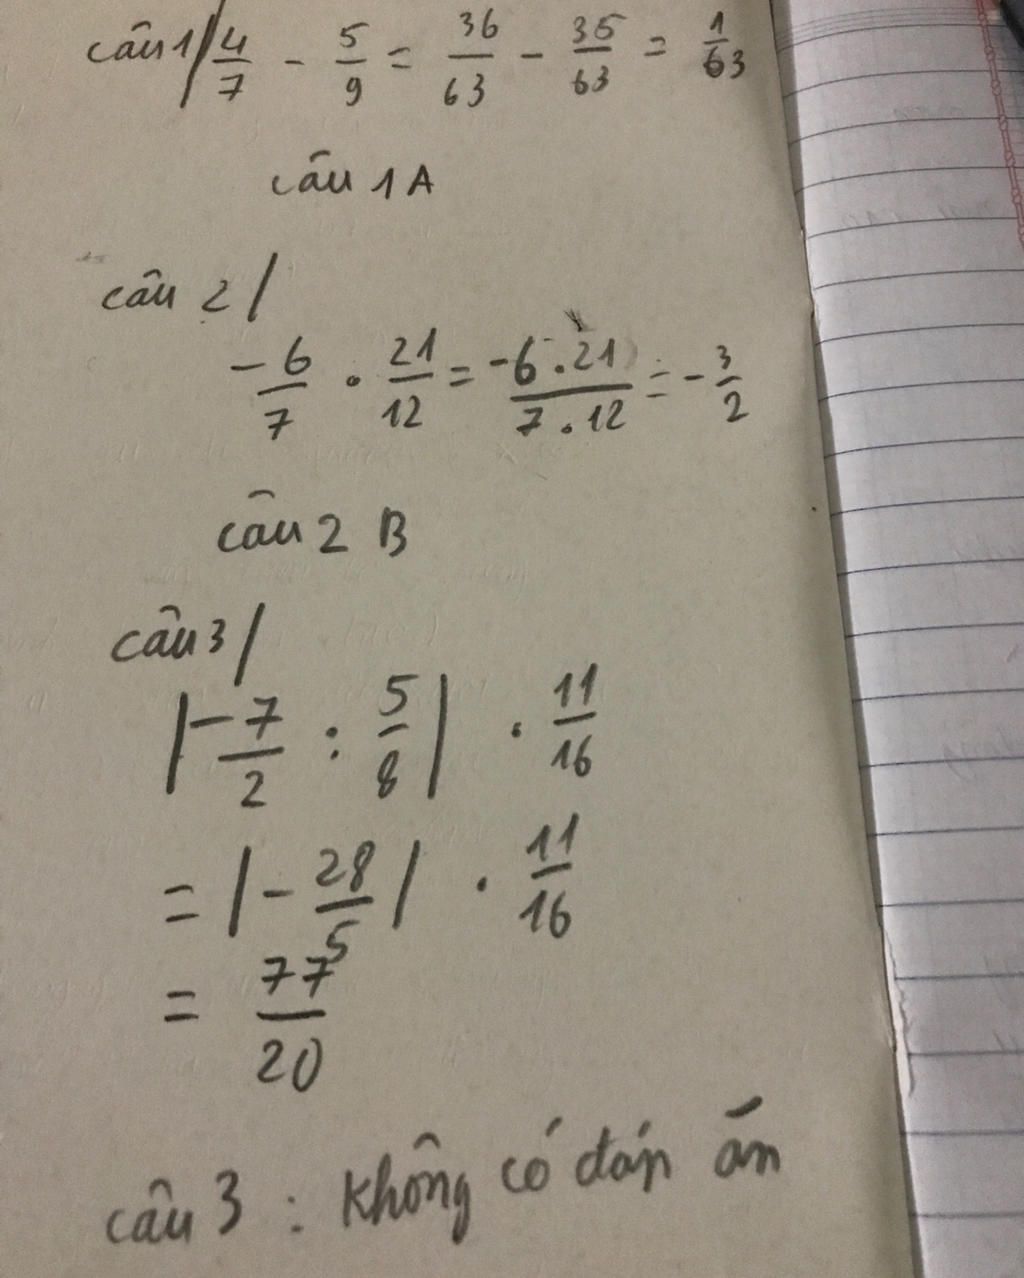 câu 1/ 4/7 - 5/9 = 36/63 - 35/63 = 1/63
câu 1 A
câu 2/
-6/7 . 21/12 = -6.21/7.12 = -3/2
câu 2 B
câu 3/
|-7/2 : 5/8| . 11/16
= |-28/5| . 11/16
= 77/20
câu 3 : không có đáp án